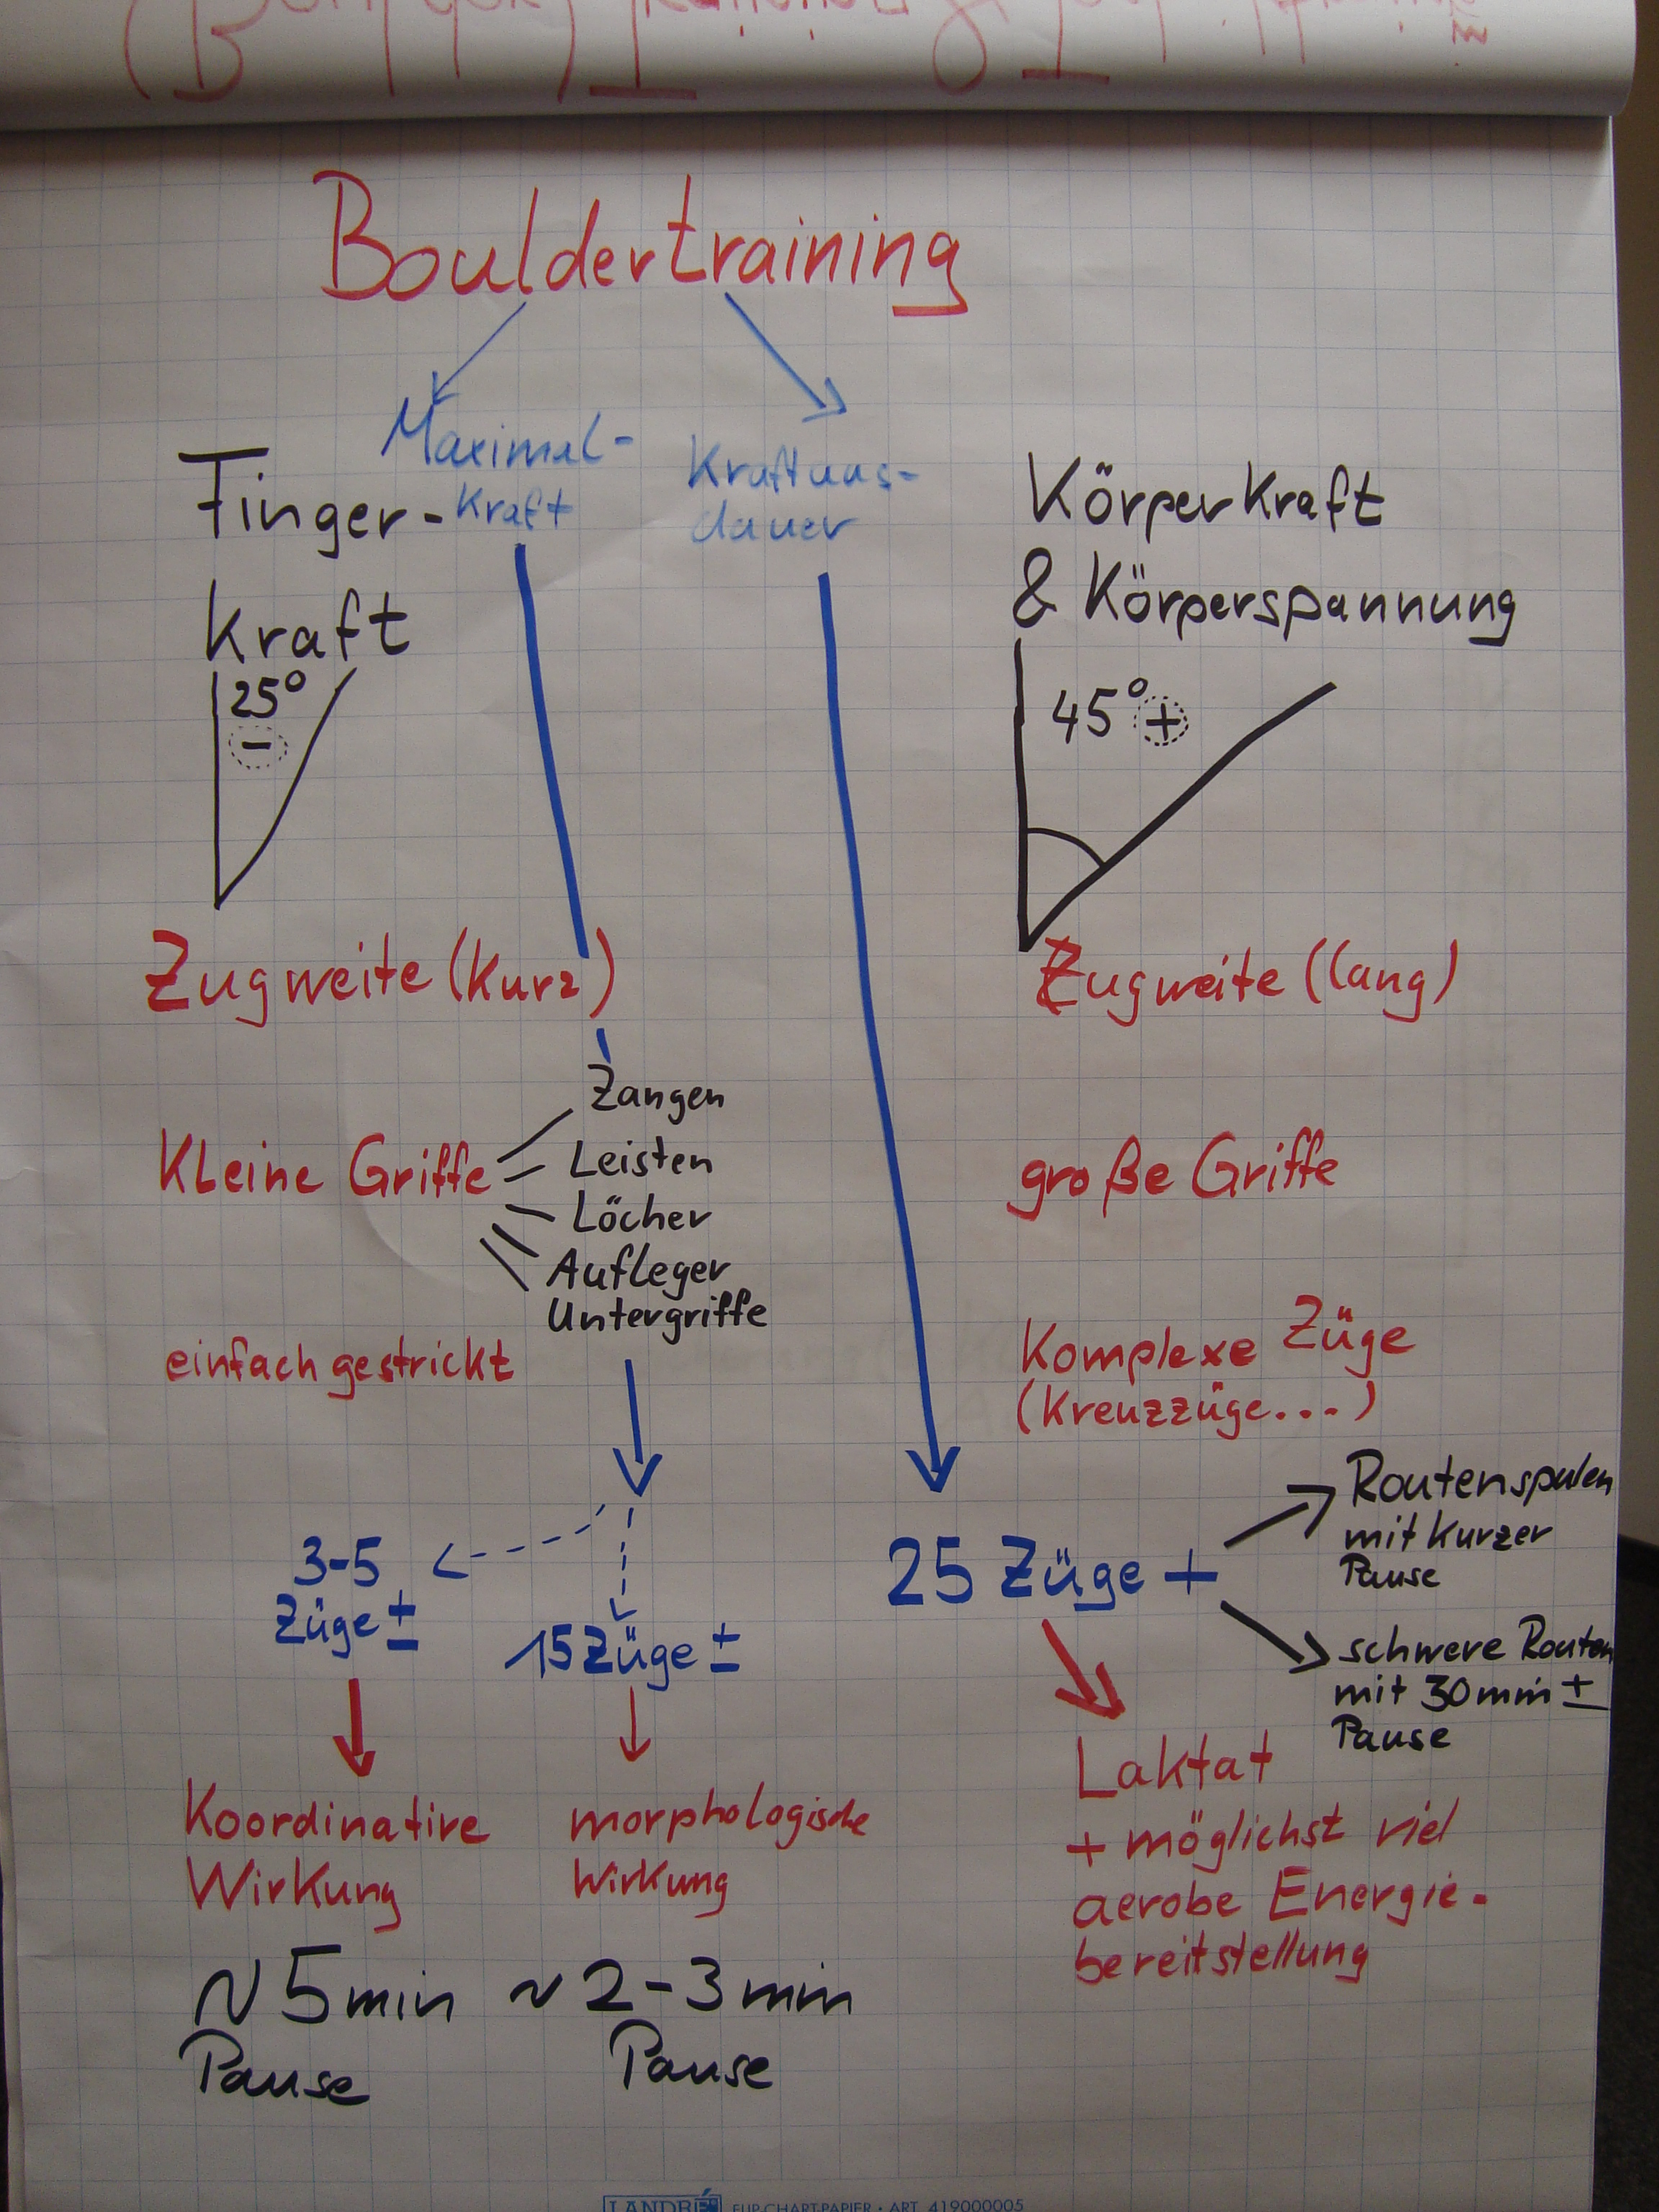 Bouldertraining
Maximal-
Kraft
Kraftaus-
dauer
Finger-
Kraft
25°
-
Körperkraft
& Körperspannung
45° +
Zugweite (kurz)
Zugweite (lang)
Kleine Griffe
Zangen
Leisten
Löcher
Aufleger
Untergriffe
große Griffe
einfach gestrickt
Komplexe Züge
(Kreuzzüge...)
3-5
Züge ±
15 Züge ±
25 Züge +
Routenspulen
mit kurzer
Pause
schwere Routen
mit 30 min ±
Pause
Koordinative
Wirkung
morphologische
Wirkung
Laktat
+ möglichst viel
aerobe Energie-
bereitstellung
~ 5 min
Pause
~ 2-3 min
Pause
LANDRÉ FLIP-CHART-PAPIER • ART. 419000005